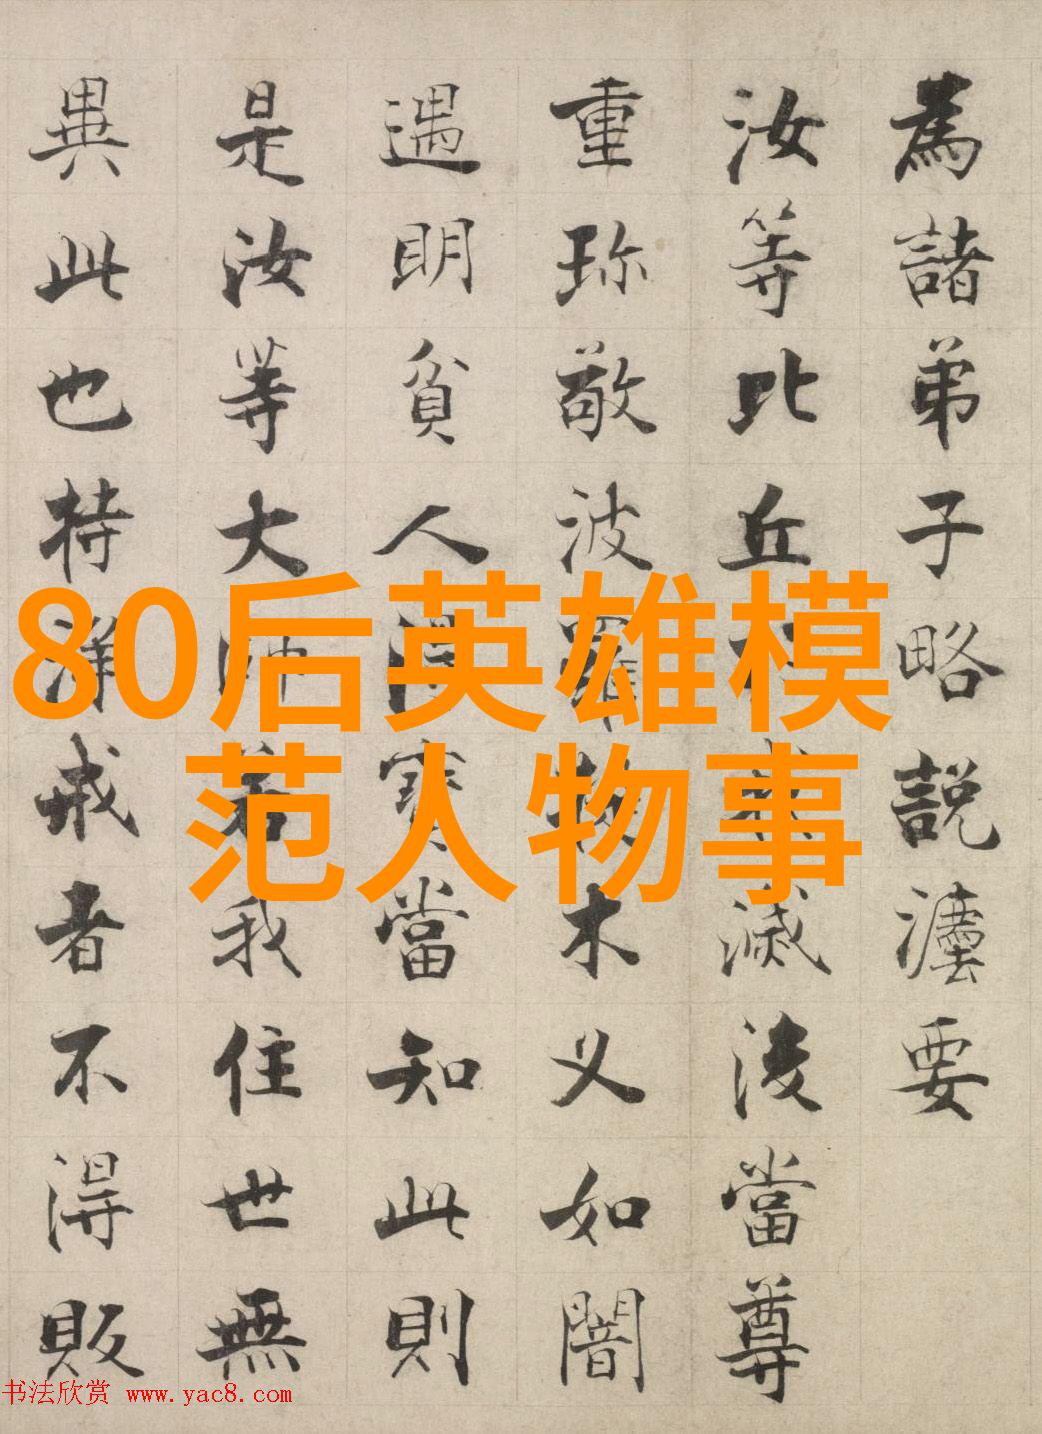 80后英雄模
范人物事
為諸弟子略説灋要
汝等比丘於我滅後當尊
重珎敬波羅提木叉如闇
遇明貧人得寶當知此則
是汝等大師若我住世無
異此也持淨戒者不得販
书法欣赏 www.yac8.com